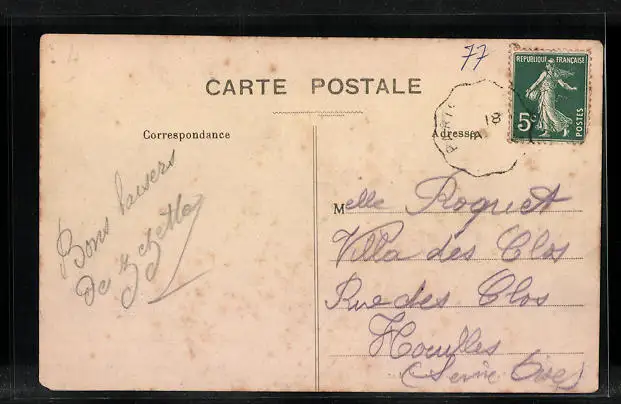 77
CARTE POSTALE
RÉPUBLIQUE FRANÇAISE
5c
POSTES
PARIS
18
Correspondance
Adresse
Bons baisers
de
Melle Roquet
Villa des Clos
Rue des Clos
Houilles
(Seine Oise)